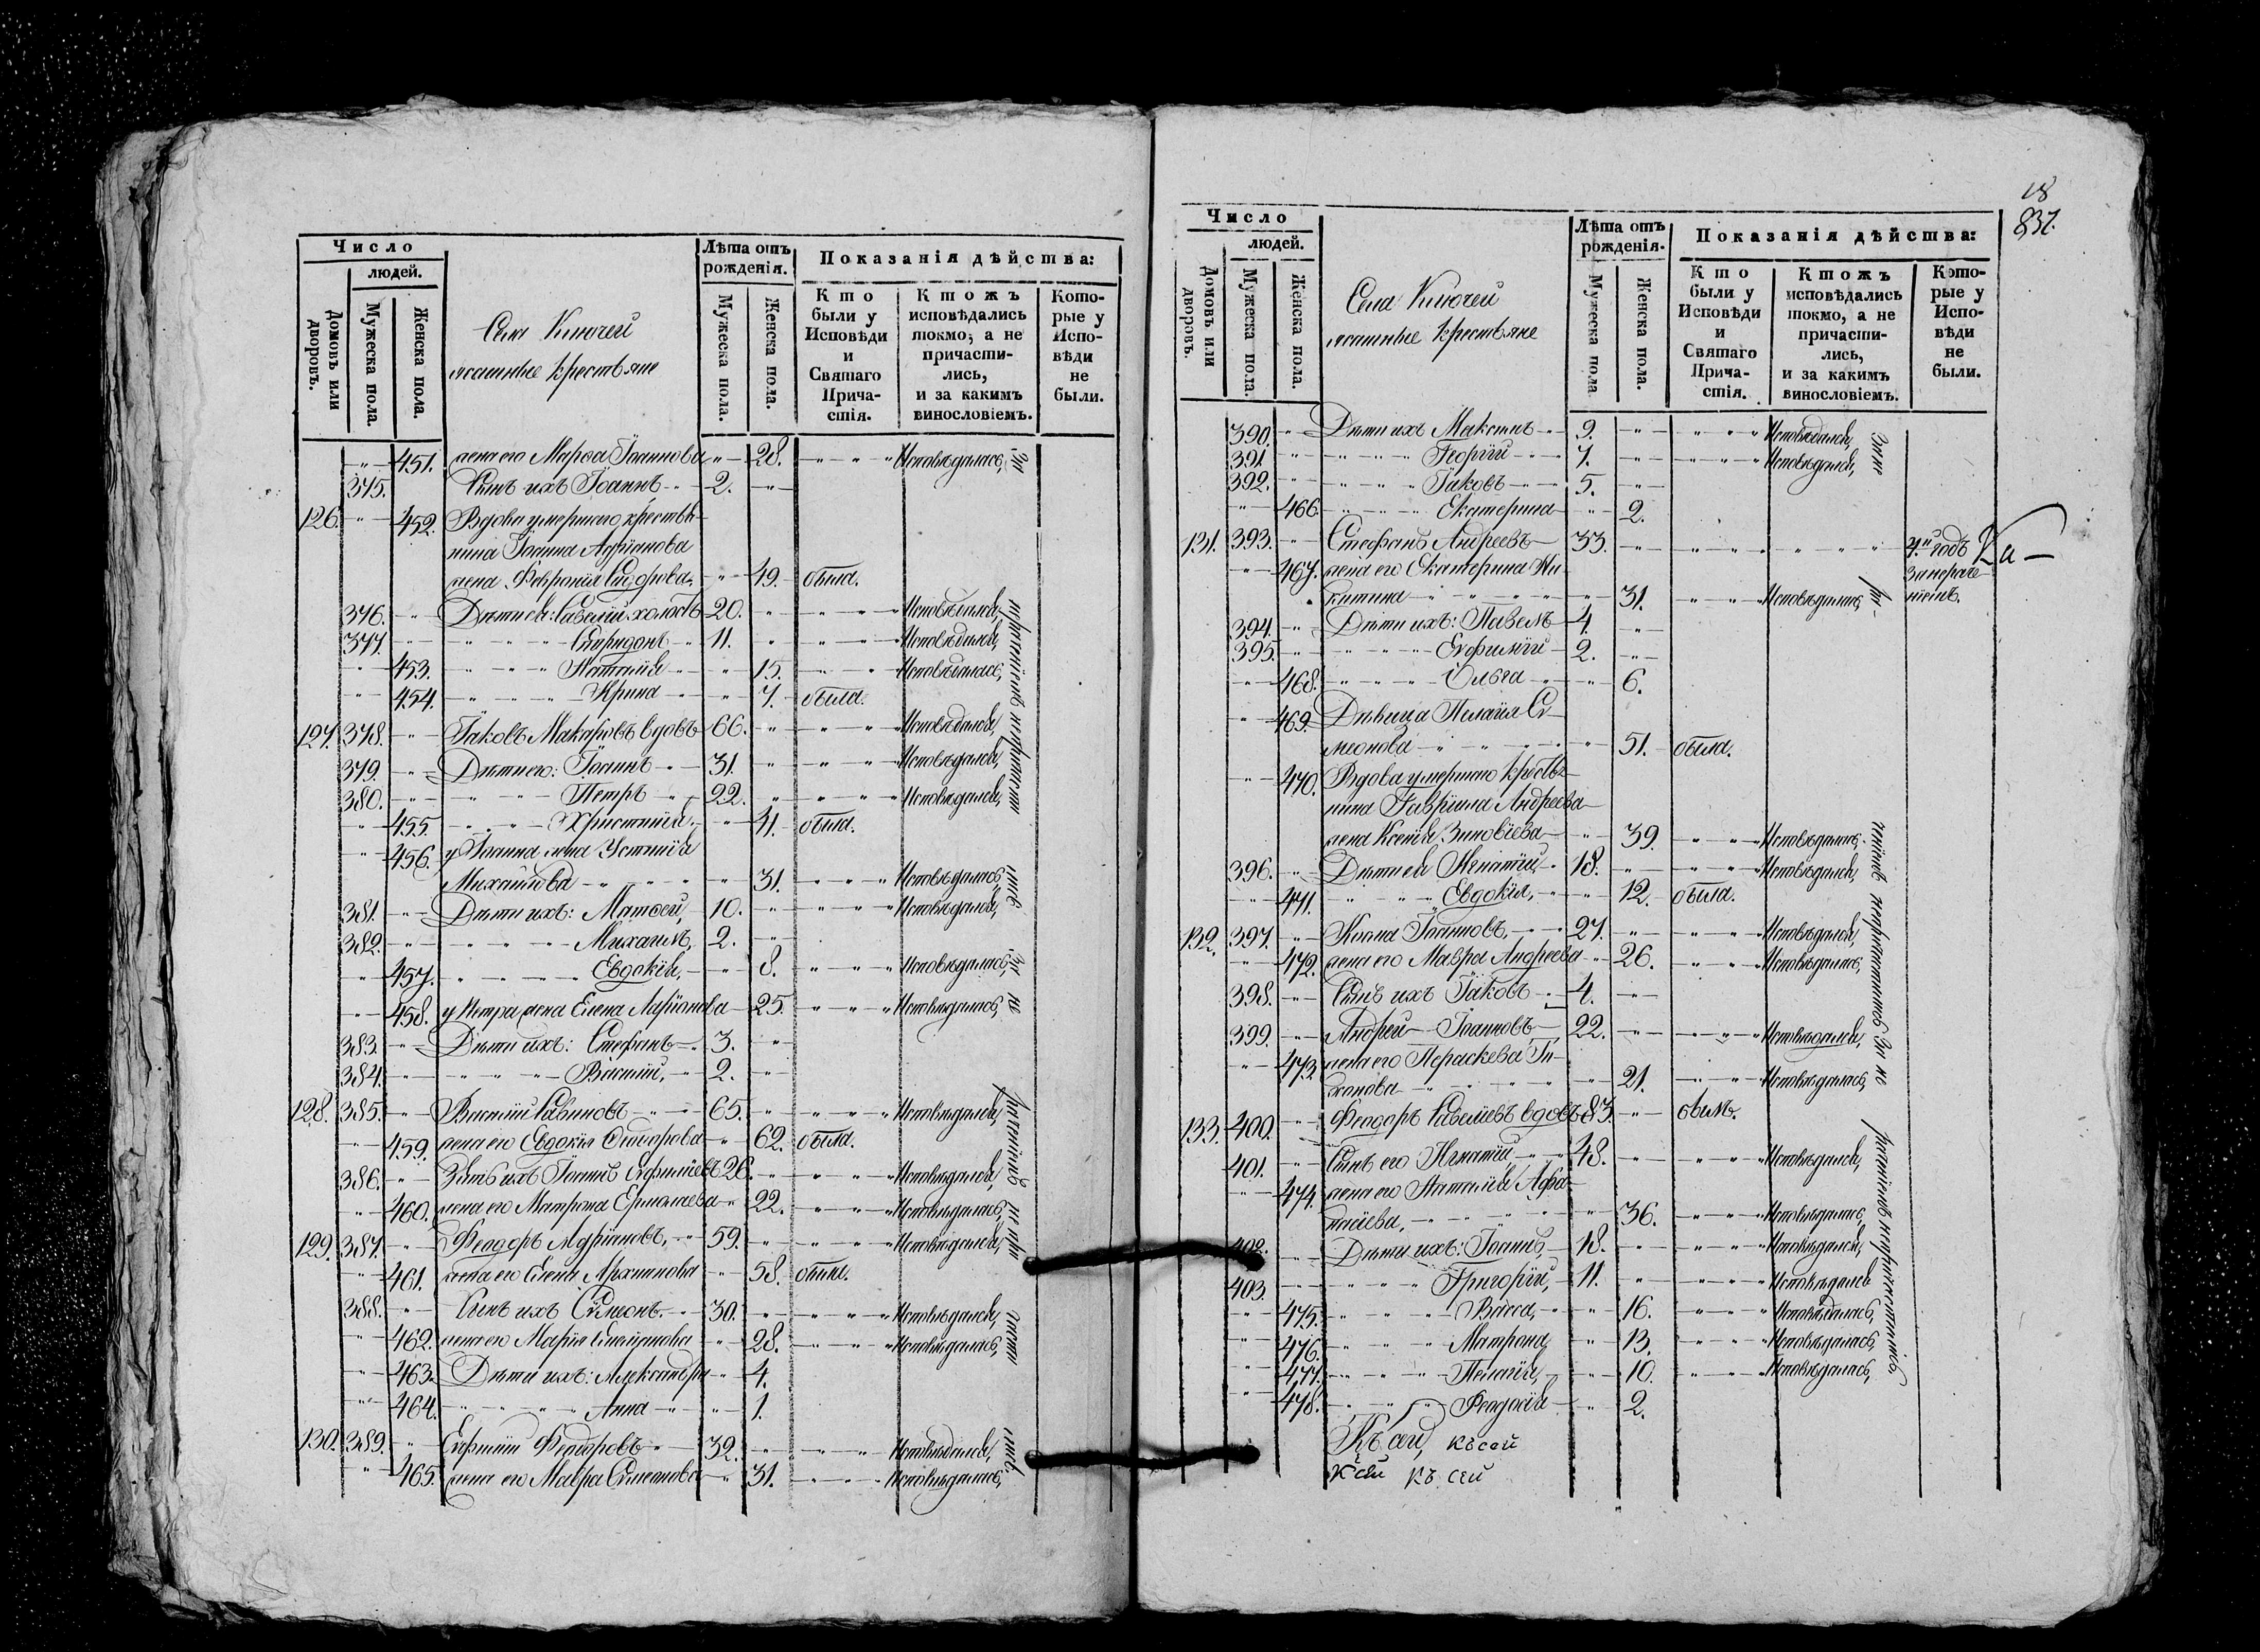 Число
людей.
Домовъ или дворовъ.
Мужеска пола.
Женска пола.
Села Ключей
ясашные крестьяне
Лѣта отъ рожденія.
Мужеска пола.
Женска пола.
Показанія дѣйства:
Кто были у Исповѣди и Святаго Причастія.
Ктожъ исповѣдались токмо, а не причастились, и за какимъ винословіемъ.
Которые у Исповѣди не были.
451. жена его Марѳа Іоаннова 28. Исповѣдалась, за
375. Сынъ ихъ Іоаннъ 2.
126. 452. Вдова умершаго крестья-
нина Іоанна Адріанова
жена Февронія 49. была.
376. Дѣти ея: Савелій холостъ 20. Исповѣдался,
377. Спиридонъ 11. Исповѣдался,
453. Наталія 15. Исповѣдалась,
454. Ирина 7. была.
127. 378. Іаковъ Макаровъ вдовъ 66. Исповѣдался,
379. Дѣти его: Іоаннъ 31. Исповѣдался,
380. Петръ 22. Исповѣдался,
455. Христина 41. была.
456. у Іоанна жена Устинія
Михайлова 31. Исповѣдалась,
381. Дѣти ихъ: Матѳей, 10. Исповѣдался,
382. Михаилъ, 2.
457. Евдокія, 8. Исповѣдалась,
458. у Петра жена Елена Ларіонова 25. Исповѣдалась,
383. Дѣти ихъ: Стефанъ 3.
384. Василій, 2.
128. 385. Василій Савиновъ 65. Исповѣдался,
459. жена его Евдокія Ѳеодорова 62. была.
386. Зять ихъ Іоаннъ 26. Исповѣдался,
460. жена его Матрона Ермолаева 22. Исповѣдалась,
129. 387. Ѳеодоръ Адріановъ, 59. Исповѣдался,
461. жена его Елена Архипова 58. была.
388. Сынъ ихъ Сѵмеонъ 30. Исповѣдался,
462. жена его Марія 28. Исповѣдалась,
463. Дѣти ихъ: Александра 4.
464. Анна 1.
130. 389. Ѳеодоровъ 32. Исповѣдался,
465. жена его Мавра Сѵмеонова 31. Исповѣдалась,
18
837.
Число
людей.
Домовъ или дворовъ.
Мужеска пола.
Женска пола.
Села Ключей
ясашные крестьяне
Лѣта отъ рожденія.
Мужеска пола
Женска пола.
Показанія дѣйства:
Кто были у Исповѣди и Святаго Причастія.
Ктожъ исповѣдались токмо, а не причастились, и за какимъ винословіемъ.
Которые у Исповѣди не были.
390. Дѣти ихъ Максимъ 9. Исповѣдался,
391 Георгій 7. Исповѣдался,
392. Іаковъ 5.
466. Екатерина 2.
131. 393. Стефанъ Андреевъ 33. годъ
467. жена его Екатерина Ни-
китина 31. Исповѣдалась,
394. Дѣти ихъ: Павелъ 4.
395. Евфимій 2.
468. Ольга 6.
469. Дѣвица Пелагія Сѵ-
меонова 51. была.
470. Вдова умершаго крестья-
нина Гавріила Андреева
жена Ксенія Зиновіева 39. Исповѣдалась,
396. Дѣти ея Игнатій, 18. Исповѣдался,
471. Евдокія, 12. была.
132. 397. Козма Іоанновъ, 27. Исповѣдался,
472. жена его Мавра Андреева 26. Исповѣдалась,
398. Сынъ ихъ Іаковъ 4.
399. Андрей Іоанновъ 22. Исповѣдался,
473. жена его Параскева Ти-
хонова 21. Исповѣдалась,
133. 400. Ѳеодоръ Савеліевъ вдовъ 83. былъ.
401. Сынъ его Игнатій 48. Исповѣдался,
474. жена его Наталія Афа-
насіева, 36. Исповѣдалась,
402. Дѣти ихъ: Іоаннъ, 18. Исповѣдался,
403. Григорій, 11. Исповѣдался
475. Васса, 16. Исповѣдалась,
476. Матрона, 13. Исповѣдалась,
477. Пелагія, 10. Исповѣдалась,
478. Ѳеодосія 2.
Къ сей, къ сей
къ сей къ сей